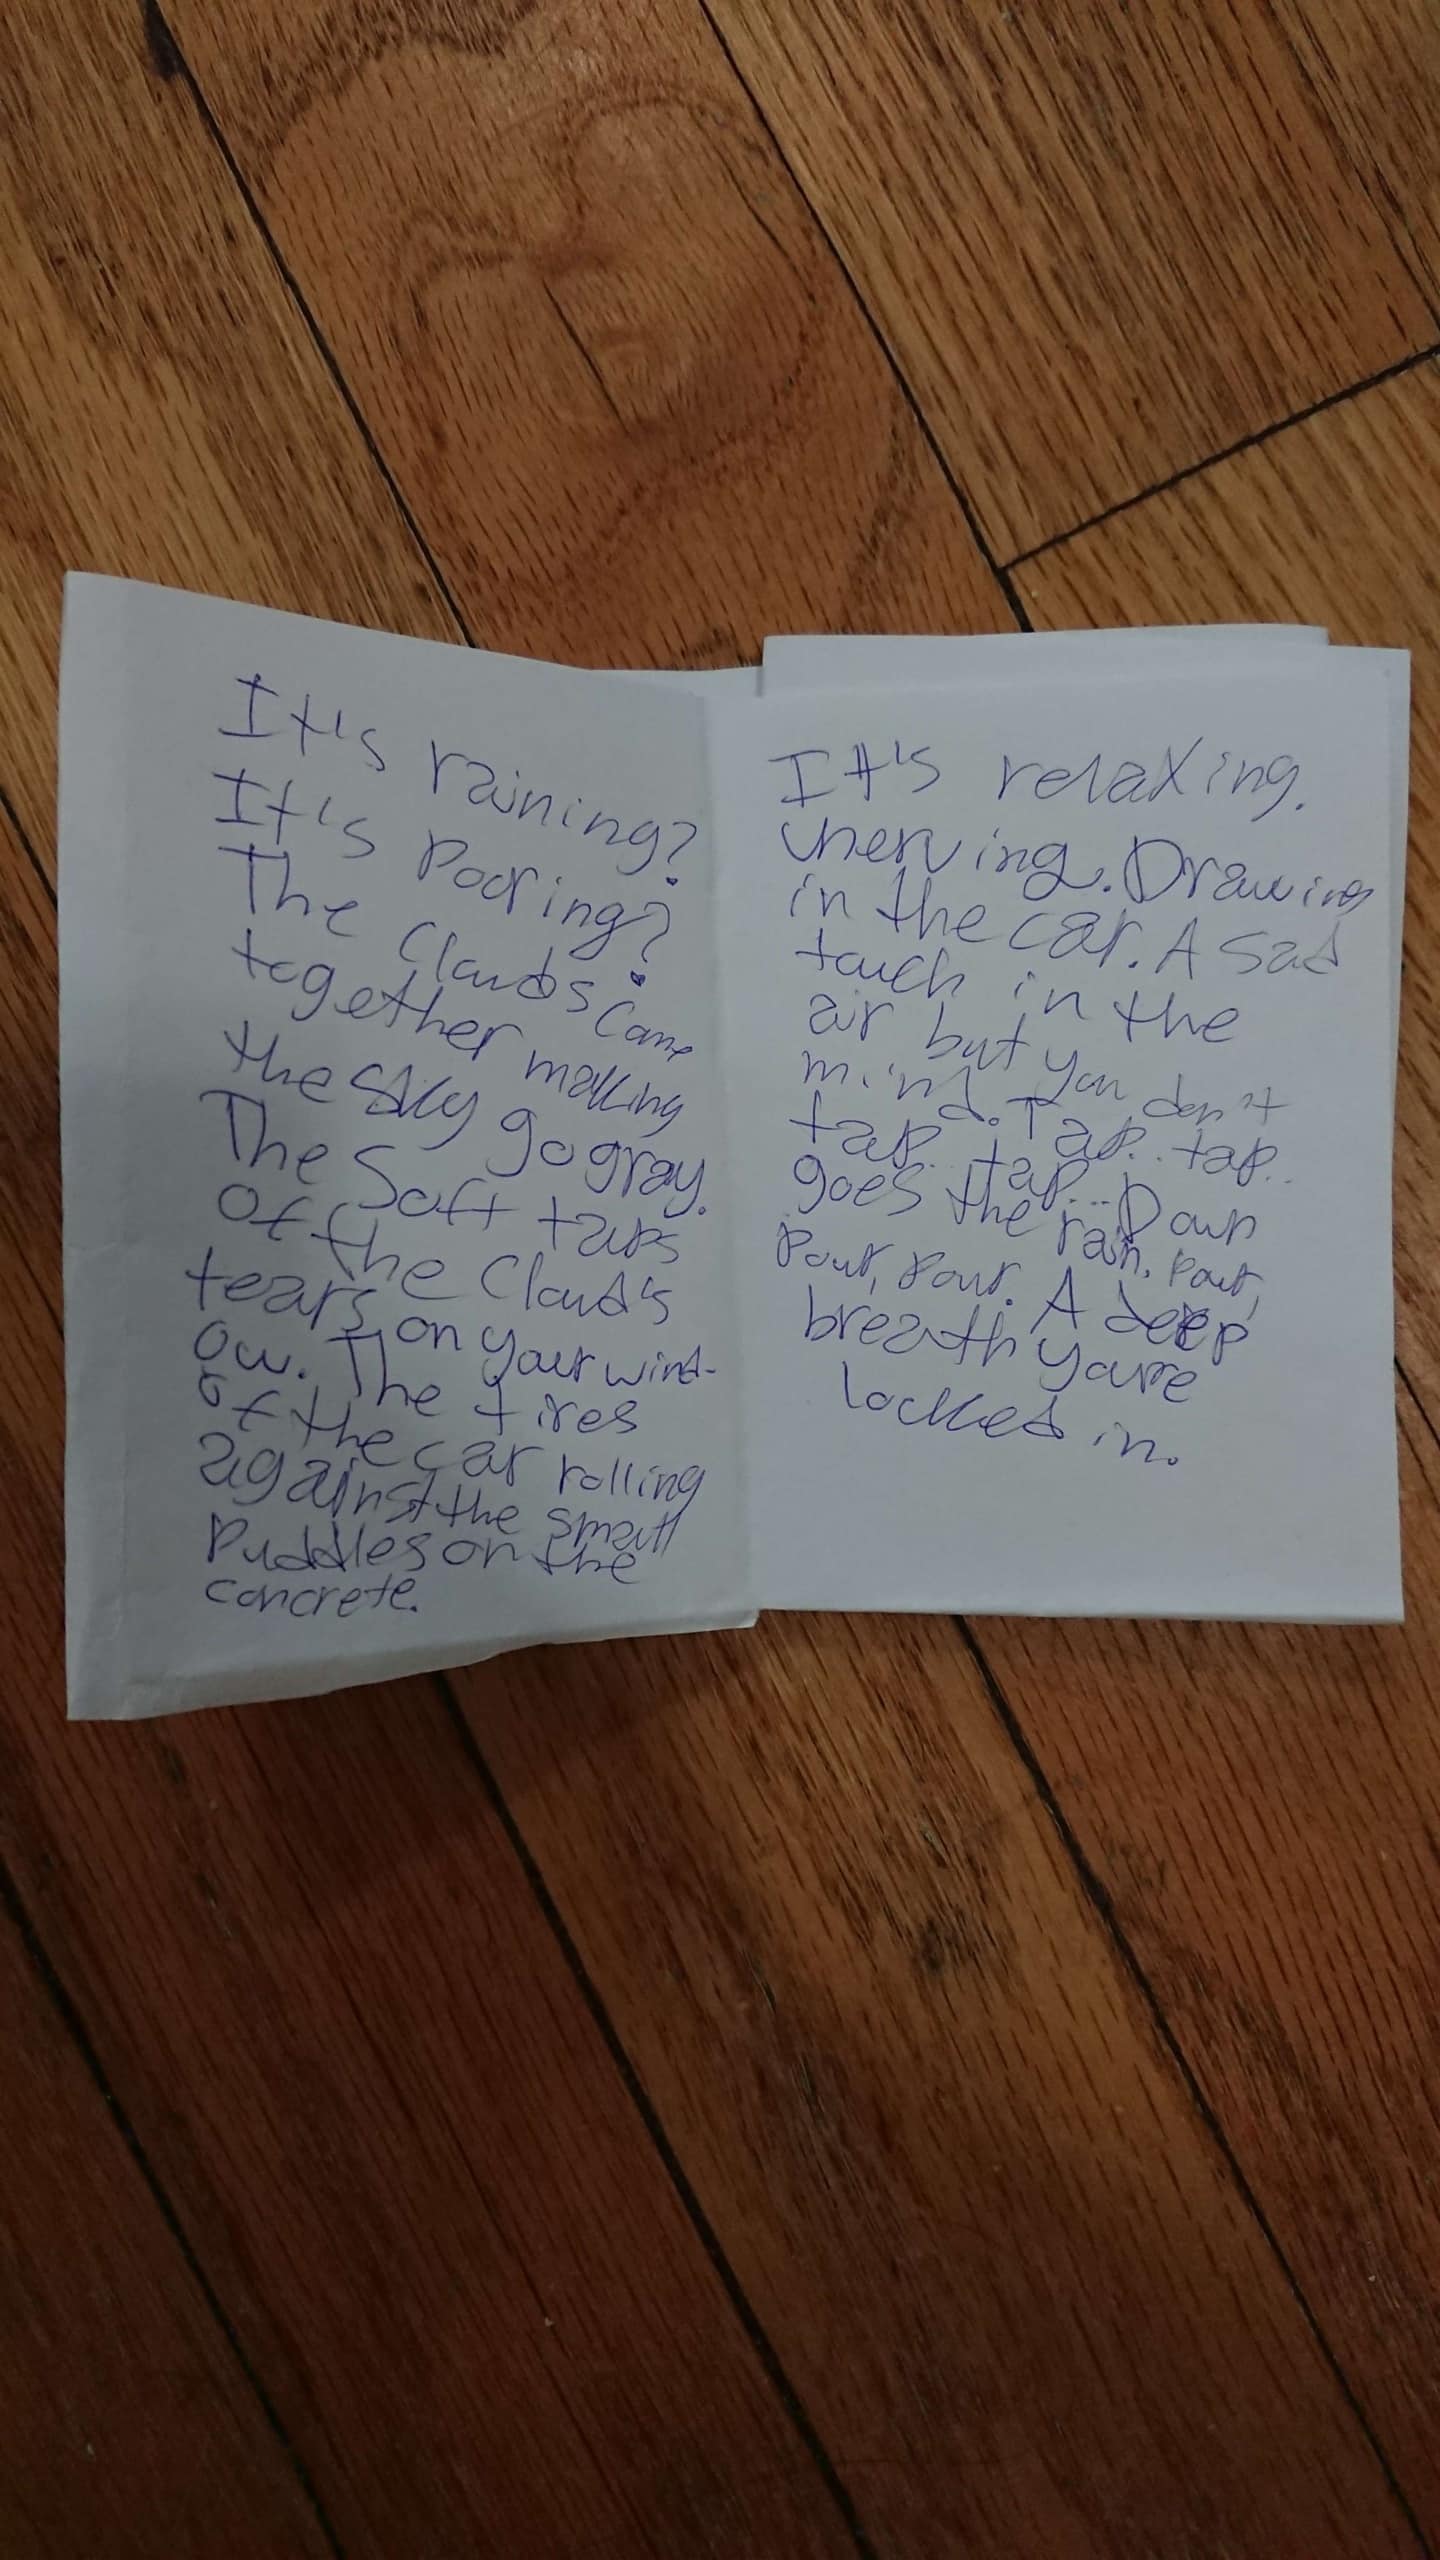 It's raining?
It's Pooring?
The Clouds Came
together making
the sky go gray.
The Soft taps
Of the Cloud's
tears on your wind-
ow. The tires
of the car rolling
against the small
Puddles on the
concrete.
It's relaxing.
Unerving. Drawing
in the car. A sad
touch in the
air but you don't
mind. Tap.. tap..
tap.. tap... Down
goes the rain. Pour,
Pour, Pour. A deep
breath you're
locked in.